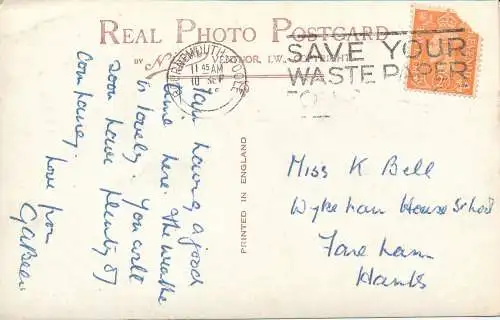 REAL PHOTO POSTCARD
BY VENTNOR, I.W. COPYRIGHT
BOURNEMOUTH POOLE
11 45 AM
10 SEP
SAVE YOUR
WASTE PAPER
PRINTED IN ENGLAND
Am having a good
time here. The weather
is lovely. You will
soon have plenty of
company.
Love from
Miss K Bell
Wykeham House School
Fareham
Hants